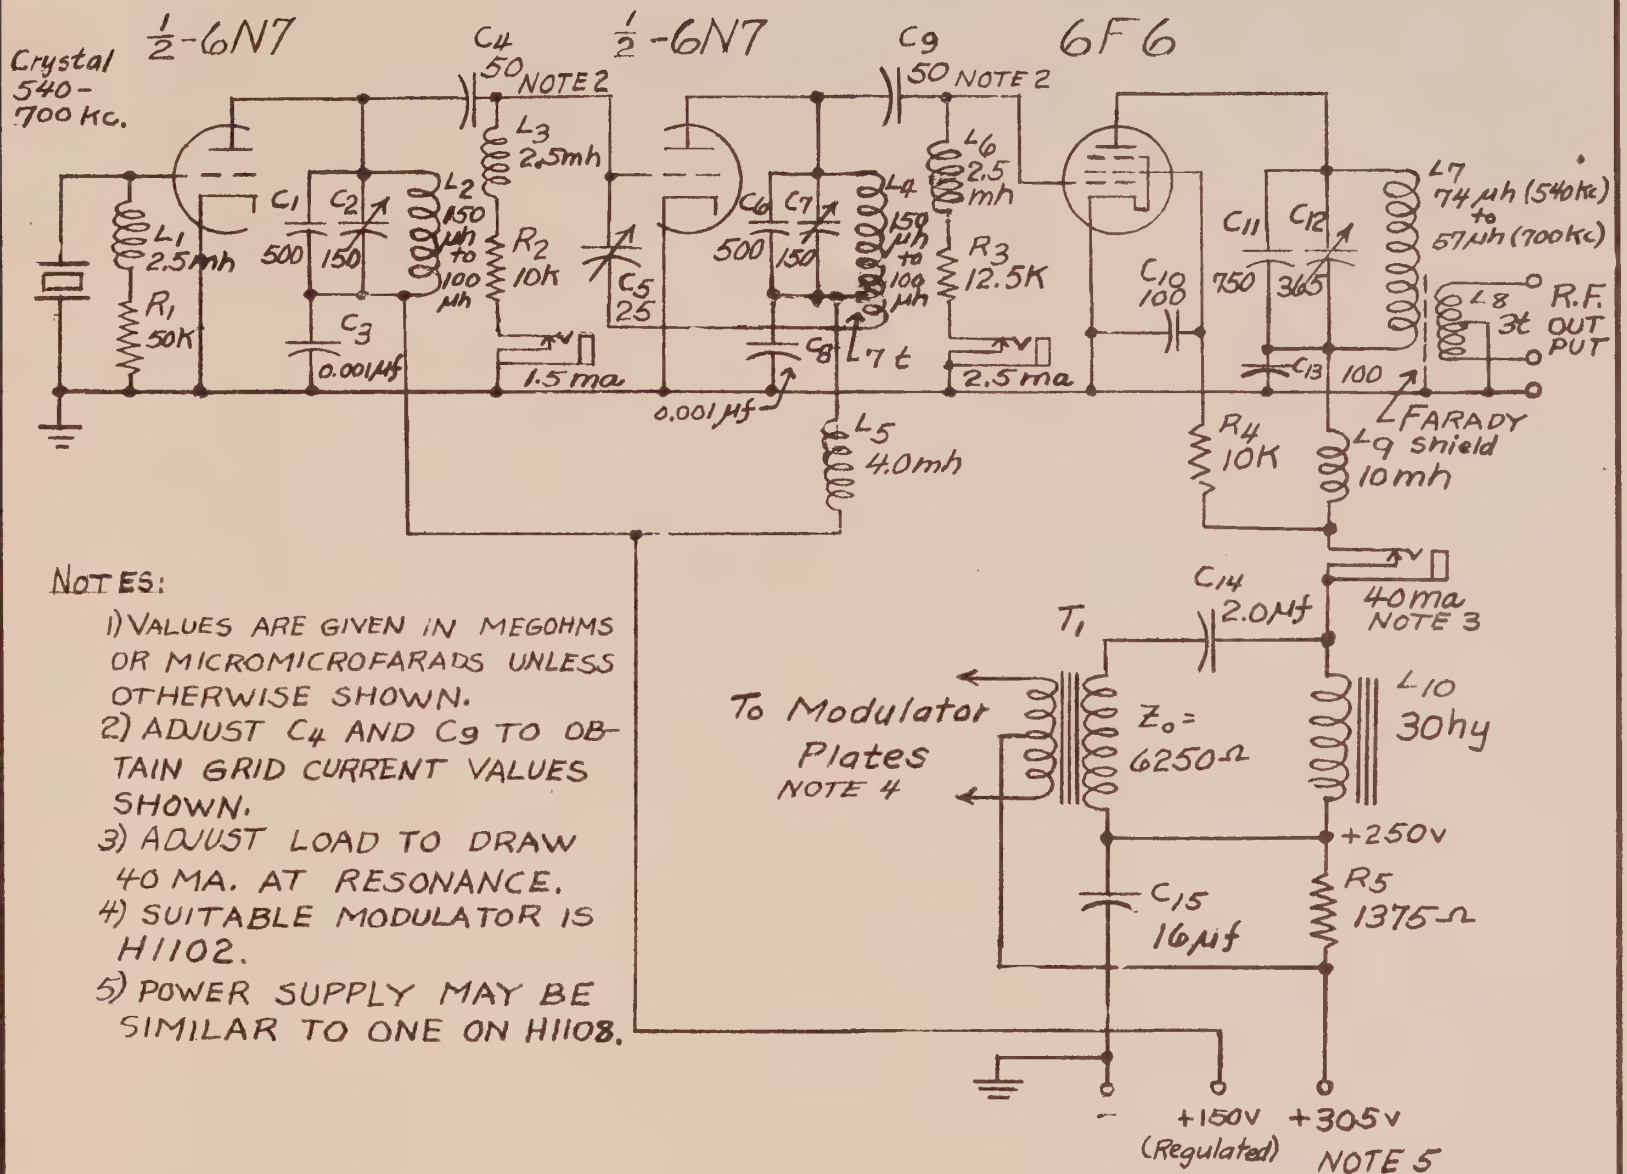 ½-6N7
½-6N7
6F6
Crystal
540-
700 Kc.
C4
50 NOTE 2
C9
50 NOTE 2
L1
2.5mh
R1
50K
C1
500
C2
150
L2
150
µh
to
100
µh
C3
0.001µf
L3
2.5mh
R2
10K
1.5ma
C5
25
C6
500
C7
150
L4
150
µh
to
100
µh
C8
0.001µf
7t
L5
4.0mh
L6
2.5
mh
R3
12.5K
2.5ma
C10
100
C11
750
C12
365
C13 100
L7
74µh (540Kc)
to
57µh (700Kc)
L8
3t
R.F.
OUT
PUT
FARADY
shield
R4
10K
L9
10mh
40ma
NOTE 3
C14
2.0µf
T1
To Modulator
Plates
NOTE 4
Zo=
6250Ω
L10
30hy
+250v
C15
16µf
R5
1375Ω
-
+150V
(Regulated)
+305v
NOTE 5
NOTES:
1) VALUES ARE GIVEN IN MEGOHMS
OR MICROMICROFARADS UNLESS
OTHERWISE SHOWN.
2) ADJUST C4 AND C9 TO OB-
TAIN GRID CURRENT VALUES
SHOWN.
3) ADJUST LOAD TO DRAW
40 MA. AT RESONANCE.
4) SUITABLE MODULATOR IS
H1102.
5) POWER SUPPLY MAY BE
SIMILAR TO ONE ON H1108.